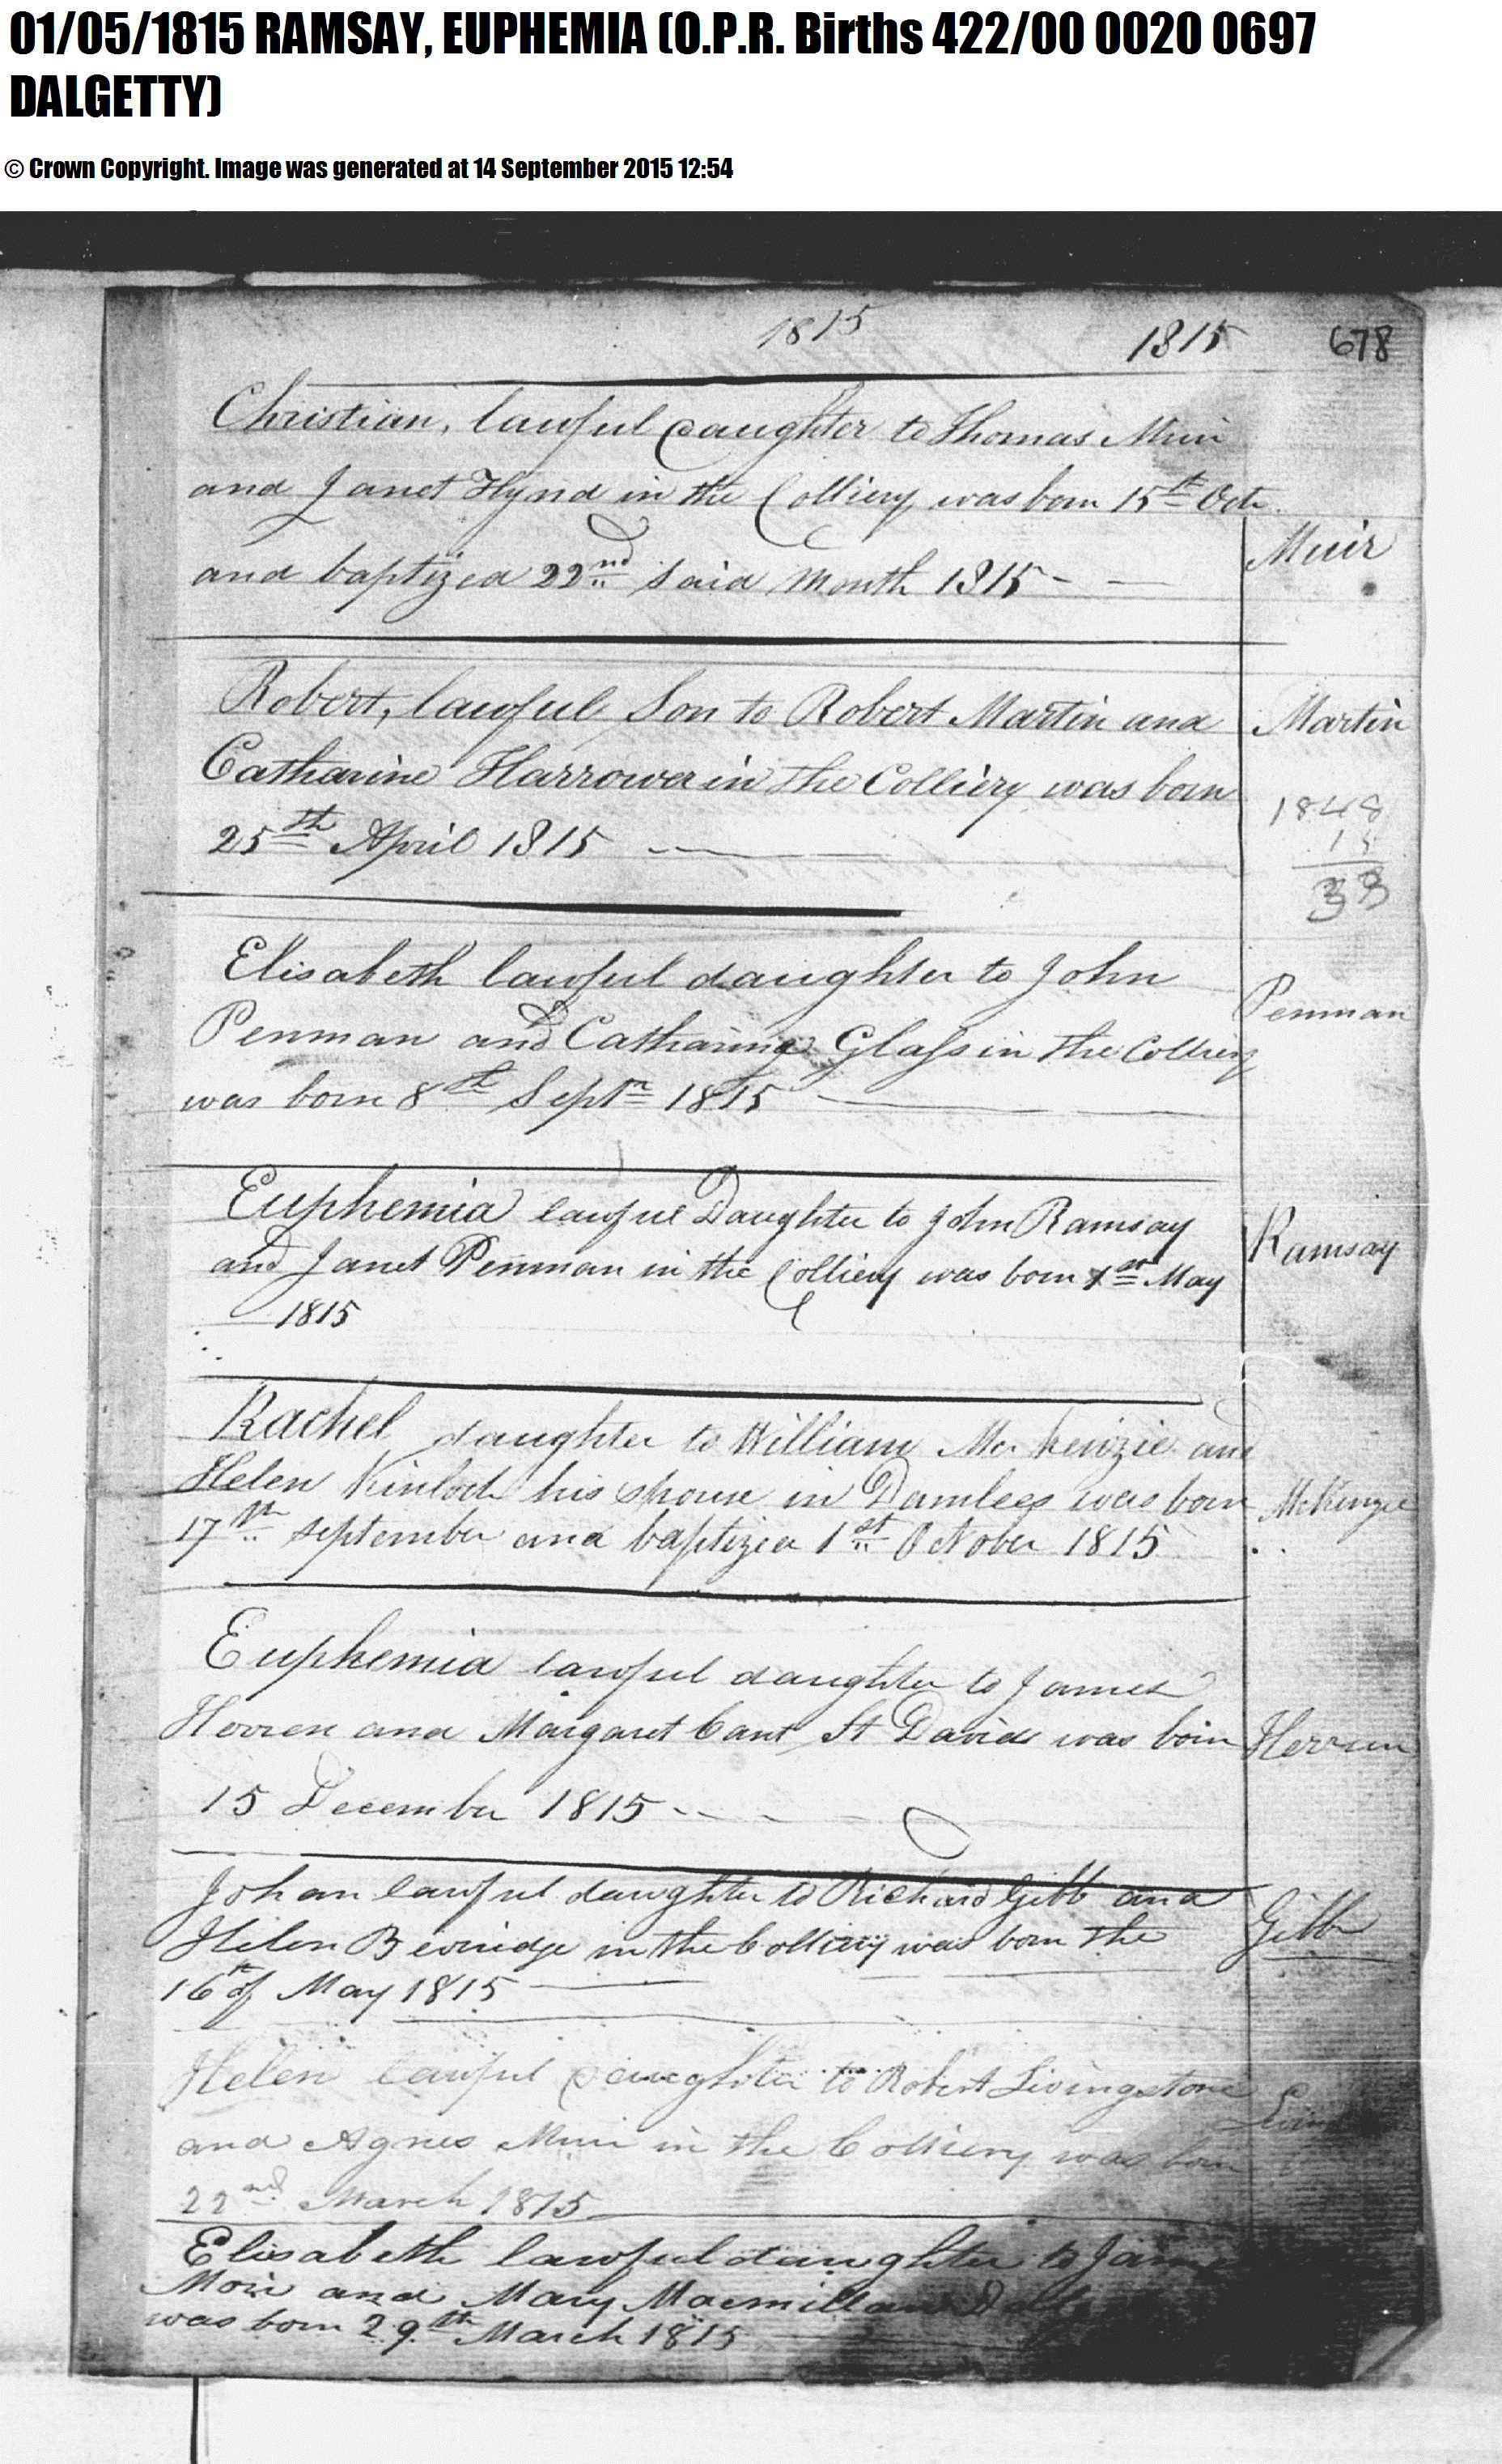 01/05/1815 RAMSAY, EUPHEMIA (O.P.R. Births 422/00 0020 0697
DALGETTY)
© Crown Copyright. Image was generated at 14 September 2015 12:54
1815 1815 678
Christian, lawful Daughter to Thomas Muir
and Janet Hynd in the Colliery was born 15th Octr.
and baptized 22nd said Month 1815
Muir
Robert, lawful Son to Robert Martin and
Martin
Catharine Harrower in the Colliery was born
25th April 1815
1848
15
33
Elisabeth lawful daughter to John
Penman and Catharine Glass in the Colliery
Penman
was born 8th Septr 1815
Euphemia lawful Daughter to John Ramsay
and Janet Penman in the Colliery was born 1st May
Ramsay
1815
Rachel daughter to William McKenzie and
Helen Kinloch his spouse in was born
McKenzie
17th September and baptized 1st October 1815
Euphemia lawful daughter to James
Herren and Margaret Cant St Davids was born
Herren
15 December 1815
Johan lawful daughter to Richard Gibb and
Helen Beveridge in the Colliery was born the
Gibb
16th of May 1815
Helen lawful Daughter to Robert Livingstone
and Agnes Muir in the Colliery was born
22nd March 1815
Elisabeth lawful daughter to
and Mary Macmillan
was born 29th March 1815